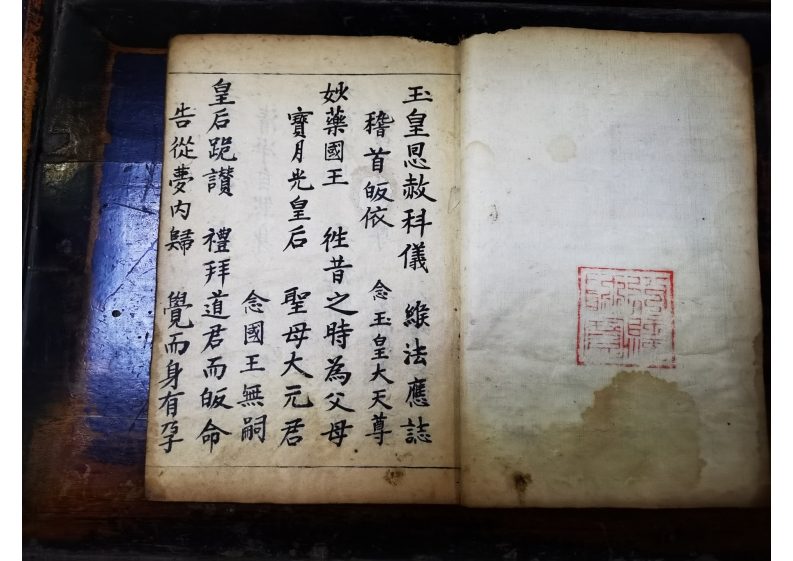 玉皇恩赦科儀 緱法應誌
稽首皈依 念玉皇大天尊
妙藥國王 徃昔之時為父母
寶月光皇后 聖母大元君
念國王無嗣
皇后跪讃 禮拜道君而皈命
告從夢內歸 覺而身有孕